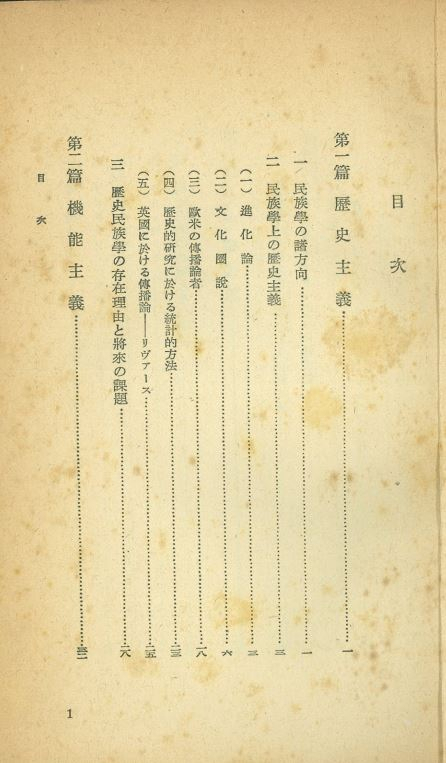 目次
第一篇 歷史主義……一
一 民族學の諸方向……一
二 民族學上の歷史主義……三
(一) 進化論……三
(二) 文化圈說……六
(三) 歐米の傳播論者……一八
(四) 歷史的研究に於ける統計的方法……二三
(五) 英國に於ける傳播論——リヴァース……二五
三 歷史民族學の存在理由と將來の課題……二八
第二篇 機能主義……三二
目次
1